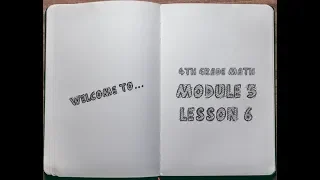 WELCOME TO...
6TH GRADE MATH
MODULE 5
LESSON 6